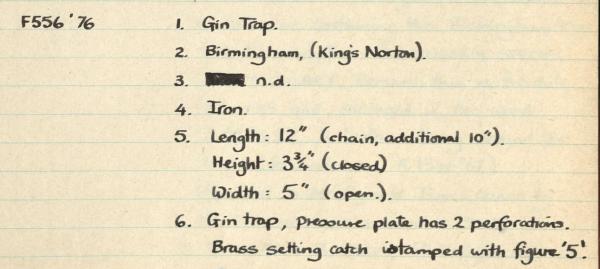 F556'76 1. Gin Trap.
2. Birmingham, (King's Norton).
3. n.d.
4. Iron.
5. Length: 12" (chain, additional 10").
Height: 3¾" (closed)
Width: 5" (open.).
6. Gin trap, pressure plate has 2 perforations.
Brass setting catch stamped with figure '5'.